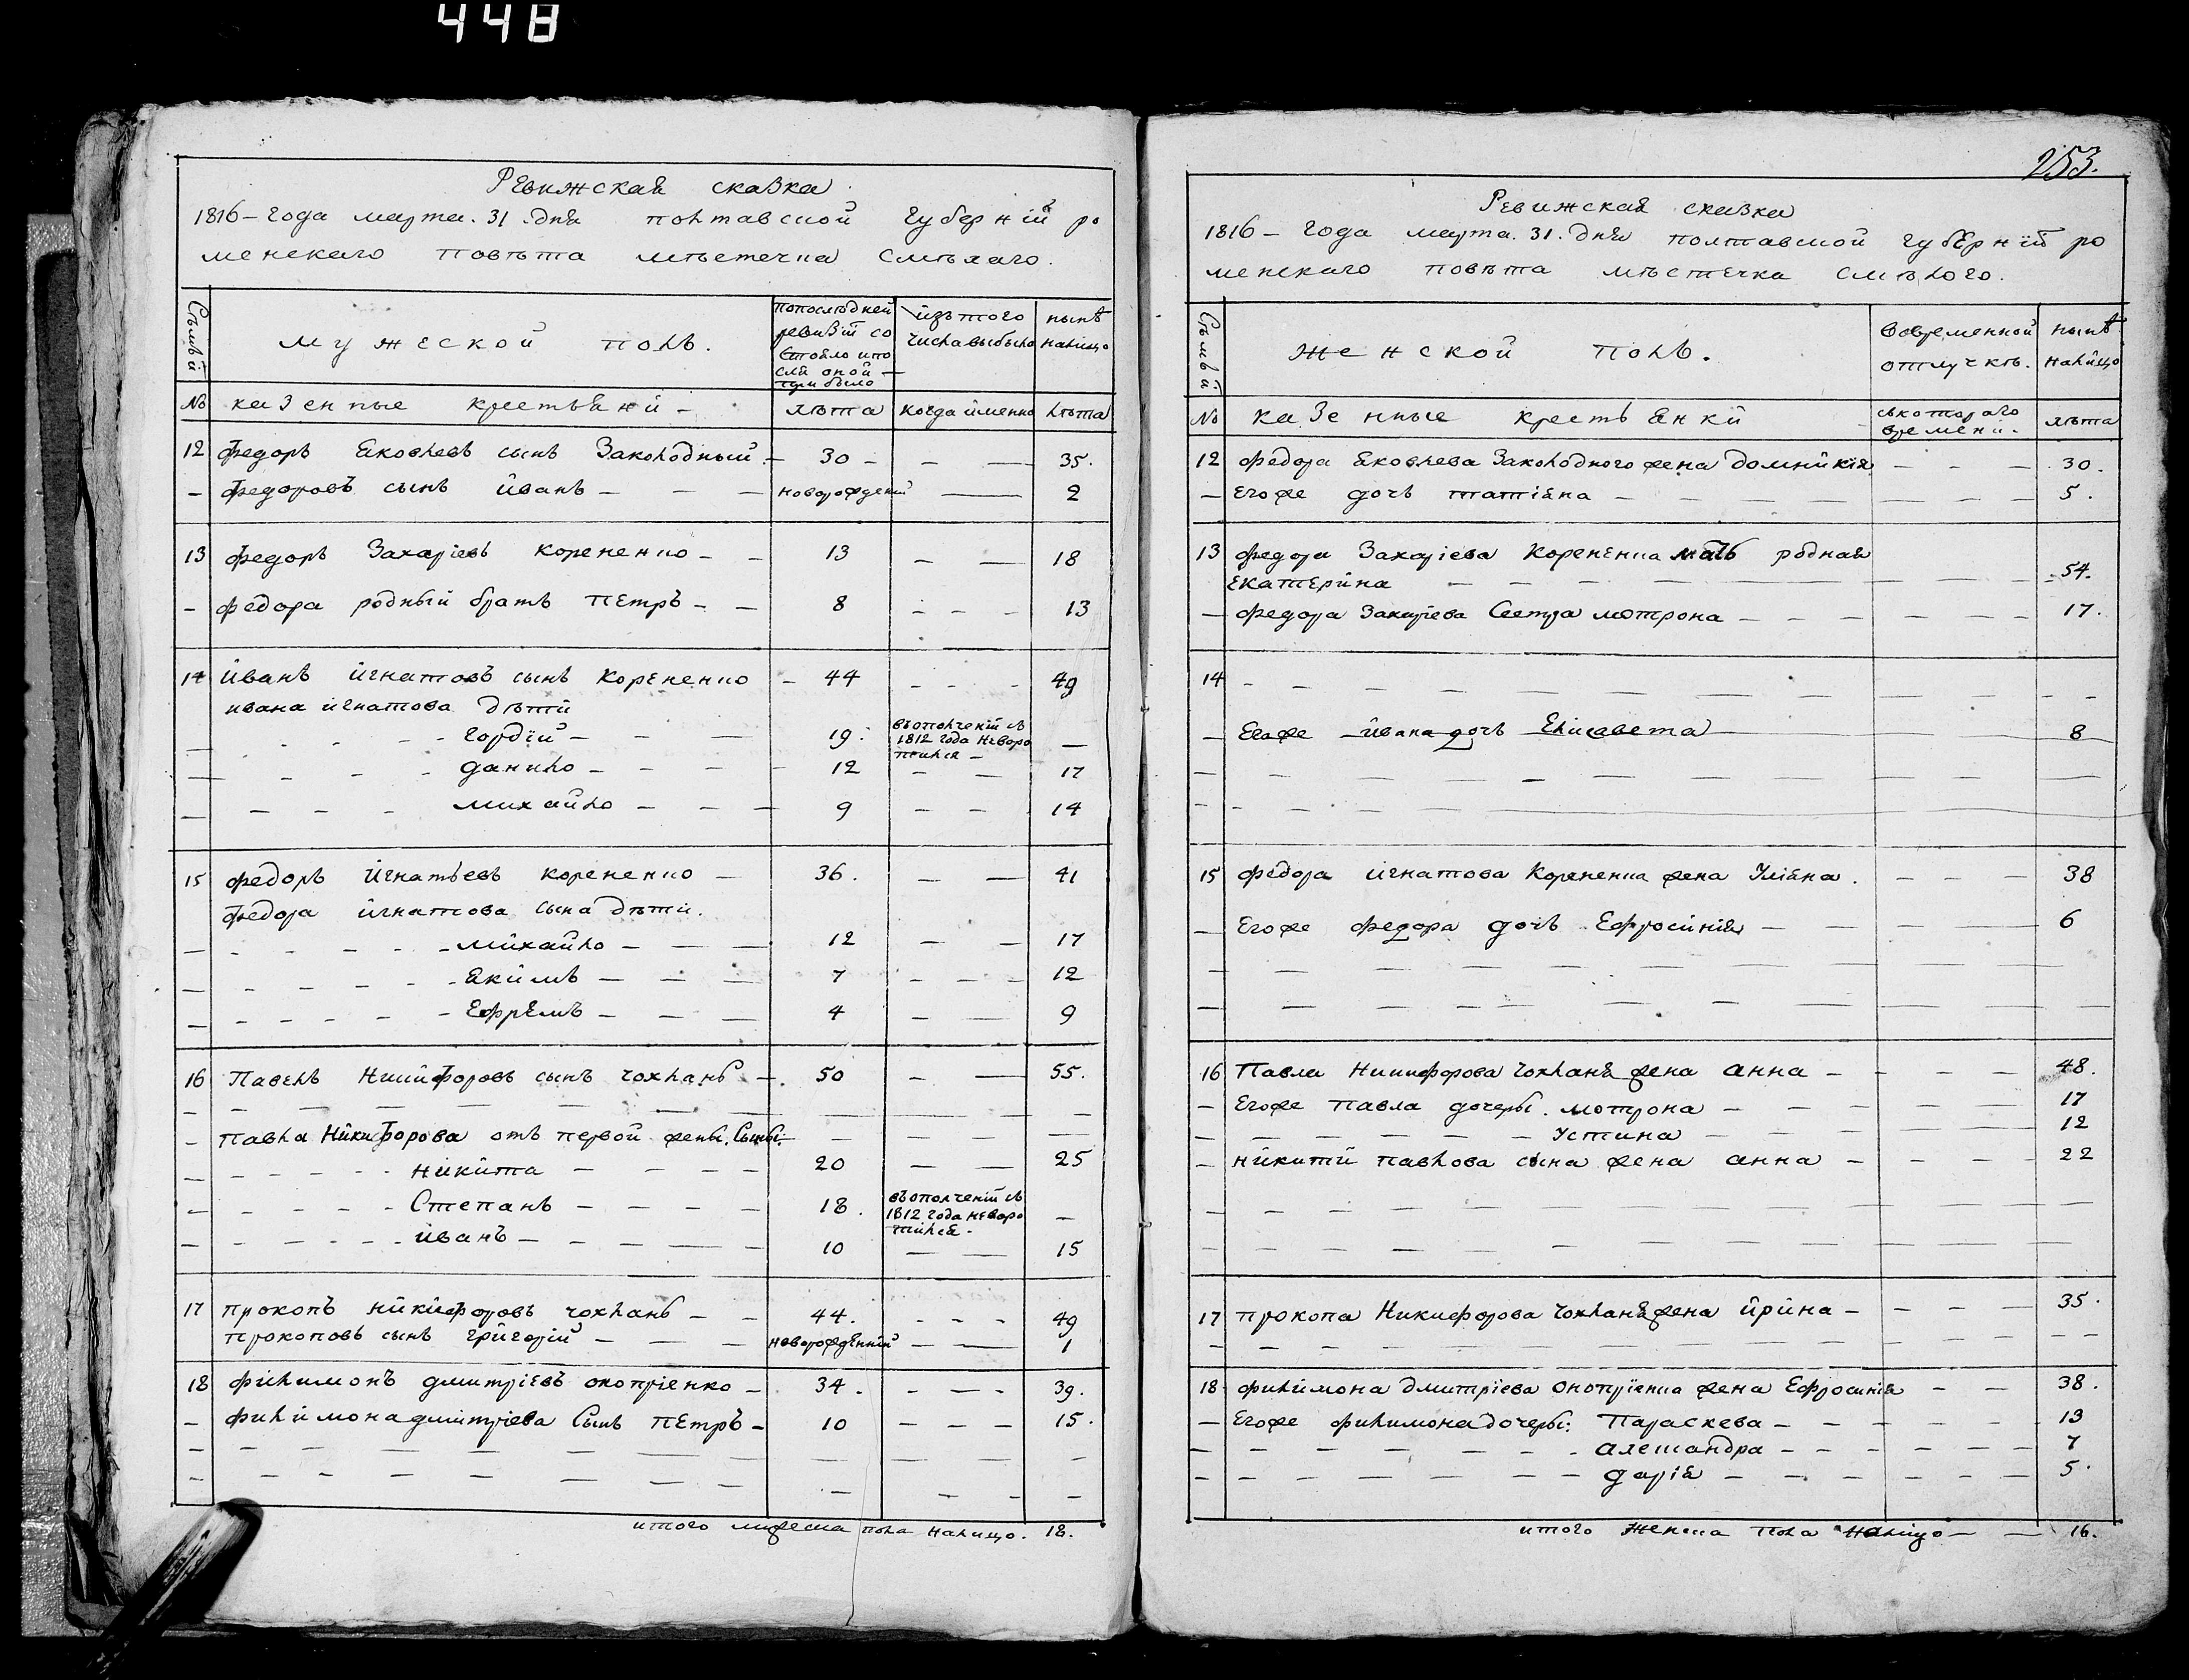 448
Ревижская сказка
1816 – года марта. 31. дня полтавской губерній ро
менскаго повѣта мѣстечка Смѣлаго.
Съмьѣ
мужеской полъ.
попослѣдней
ревизій со
стояло ипо
слѣ оной —
прибыло
изътого
числавыбыло
нынѣ
налицо
№ казенные крестьяній – лѣта когда именно лѣта
12 Федоръ Яковлевъ сынъ Заколодный – 30 – – — 35.
– Федоровъ сынъ йванъ – – – новорожденій — 2
13 Федоръ Захаріевъ Корененко – – 13 – — 18
– Федора родный братъ Петръ – – 8 – – – 13
14 йванъ йгнатовъ сынъ Корененко – 44 – – – 49
ивана игнатова дѣтй
– гордій – – — 19. въополченій съ
1812 года неворо
тился –
—
– данило – – – 12 – — 17
– михайло – – – 9 – – 14
15 Федоръ йгнатьевъ Корененко – 36. — — 41
Федора йгнатова сына дѣти.
– михайло – — — 12 – – 17
– Якимъ – — — 7 – – – 12
– Ефремъ – — — 4 – — 9
16 Павелъ Никифоровъ сынъ чохланъ –. 50 – — 55.
– Павла Никифорова отъ первой жены. Сыны.
– никита – – – – 20 — — 25
– Степанъ – – – – 18. въополченій съ
1812 года неворо
тился –
—
– йванъ – – – — – 10 — — 15
17 прокопъ никифоровъ чохланъ – – 44. – – – 49
прокоповъ сынъ григорій – – — новорожденній – — 1
18 Филимонъ дмитріевъ оноприенко – 34. – – –. 39.
– Филимонадмитріева Сынъ Петръ – 10 – – – 15.
итого мужеска пола налицо. 18.
253.
Ревижская сказка
1816 – года марта. 31. дня полтавской губерній ро
менскаго повѣта мѣстечка Смѣлого.
Съмьѣ
женской полъ.
вовременной
отлучкѣ.
нынѣ
налицо
№ казенные крестьянкй
съкотораго
времени.
лѣта
12 Федора Яковлева Заколодного жена домникія – – – 30.
– Егоже дочъ татіяна – – – – – 5.
13 Федора Захаріева Корененка мать родная
Екатерина – – – – 54.
– Федора Захаріева Сестра мотрона – – – – – 17.
14 – – – – – – – –
– Егоже йвана дочъ Елисавета — 8
15 Федора игнатова Корененка жена Уліяна. – – – 38
– Егоже федора дочъ Ефросинія – – – — 6
16 Павла Никифорова чохланя жена анна – – – – 48.
– Егоже Павла дочеры. мотрона – – – – – 17
– Устина – – – – 12
– никитй павлова сына жена анна – – – – 22
17 прокопа Никифорова чохланя жена йрина – – – – 35.
18 филимона дмитріева оноприенка жена Ефросинія – – 38.
– Егоже филимонадочеры: Параскева – – – – – 13
– александра – – – – – – 7
– дарія – – – – – – 5.
итого женска пола налицо – — 16.